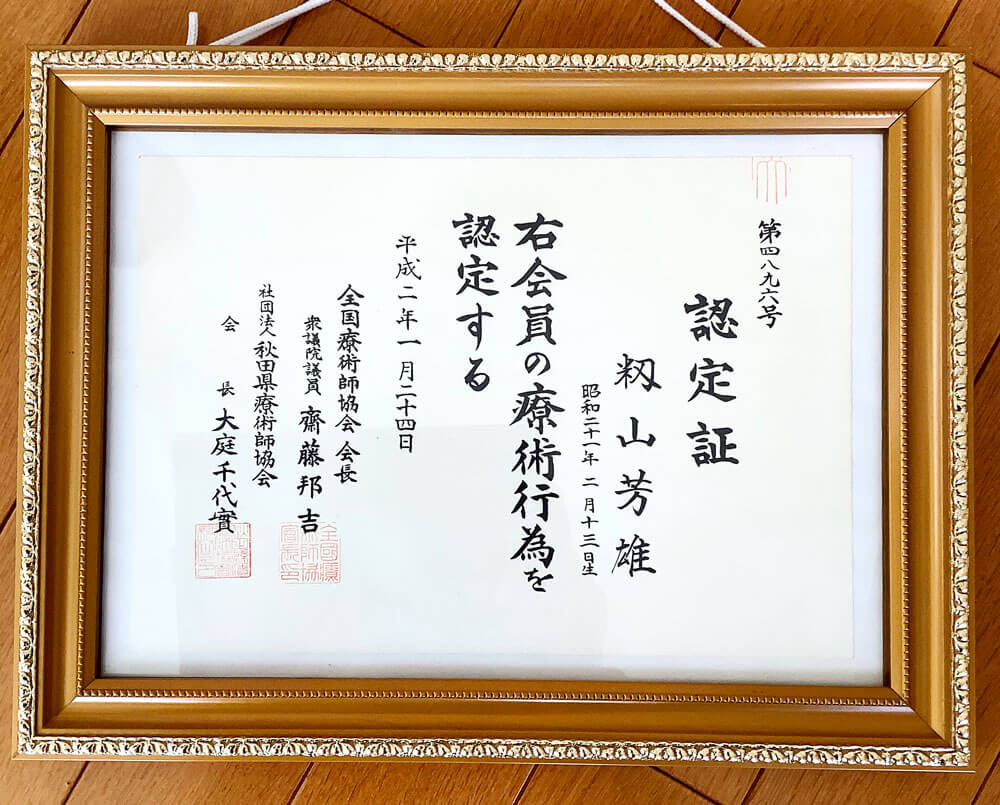 第四八九六号
認定証
籾山芳雄
昭和二十一年二月十三日生
右会員の療術行為を
認定する
平成二年一月二十四日
全国療術師協会会長
衆議院議員 齋藤邦吉
社団法人 秋田県療術師協会
会長 大庭千代實